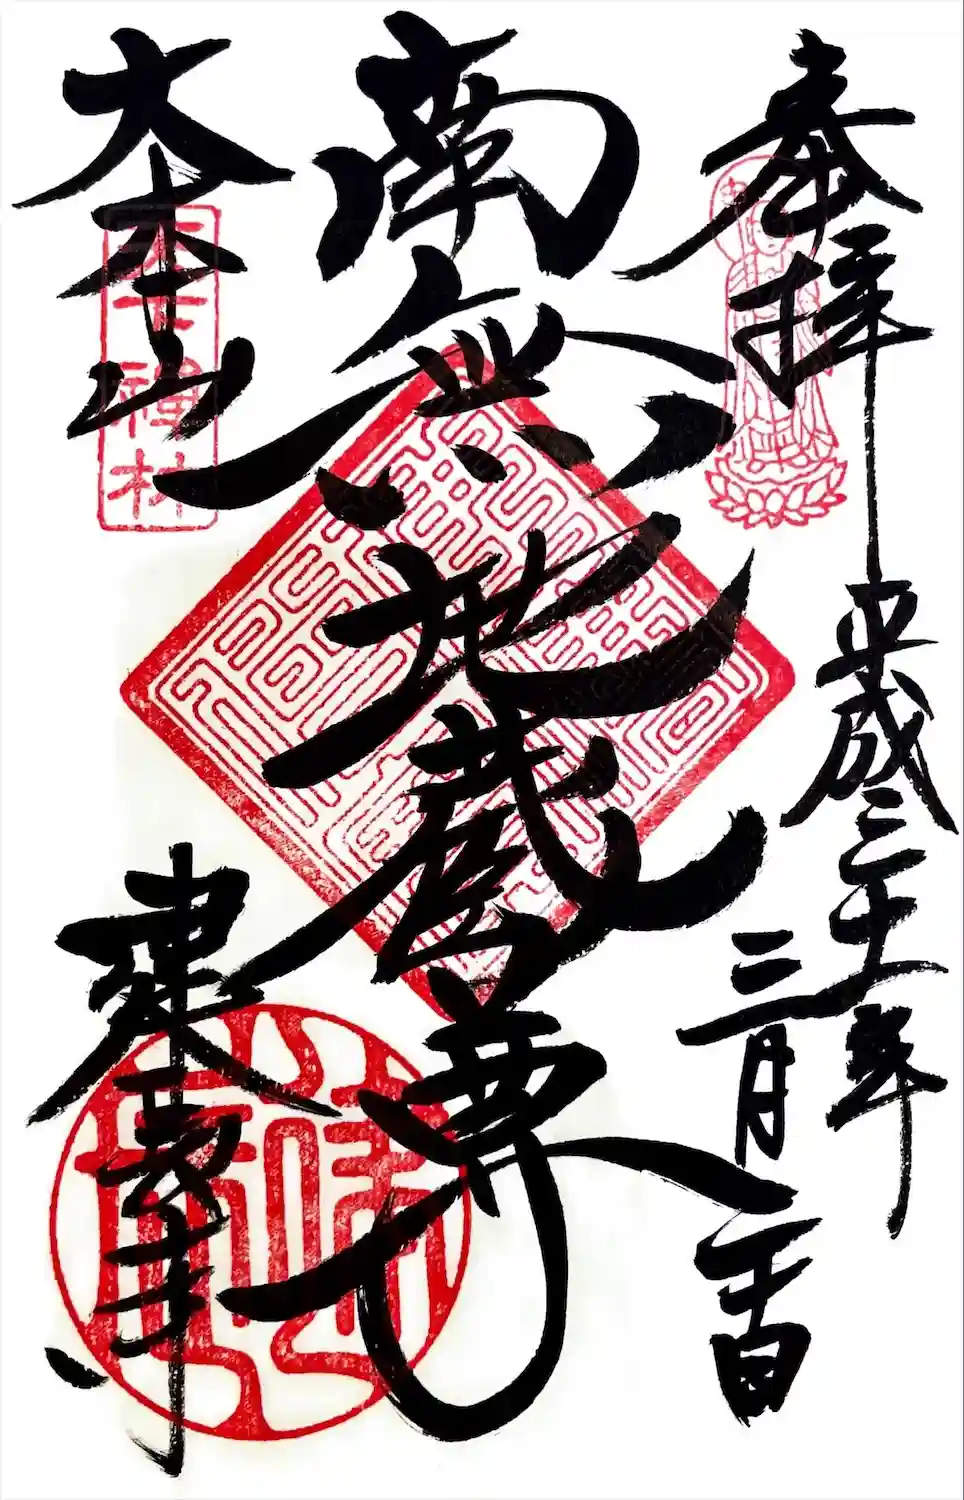 奉拝
平成三十年
三月二十日
南無地蔵尊
大本山
建長寺
天下禅林